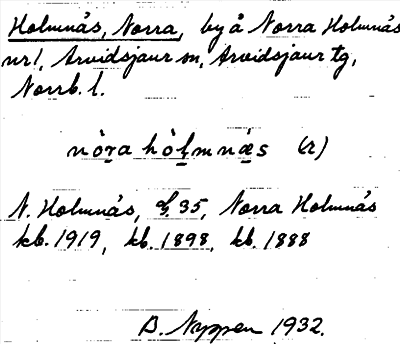 Holmnäs, Norra, by å Norra Holmnäs
nr 1, Arvidsjaur sn, Arvidsjaur tg,
Norrb. l.
nòra hòlmnæs (r)
N. Holmnäs, 35, Norra Holmnäs
kb. 1919, kb. 1898, kb. 1888
B. Nyppen 1932.